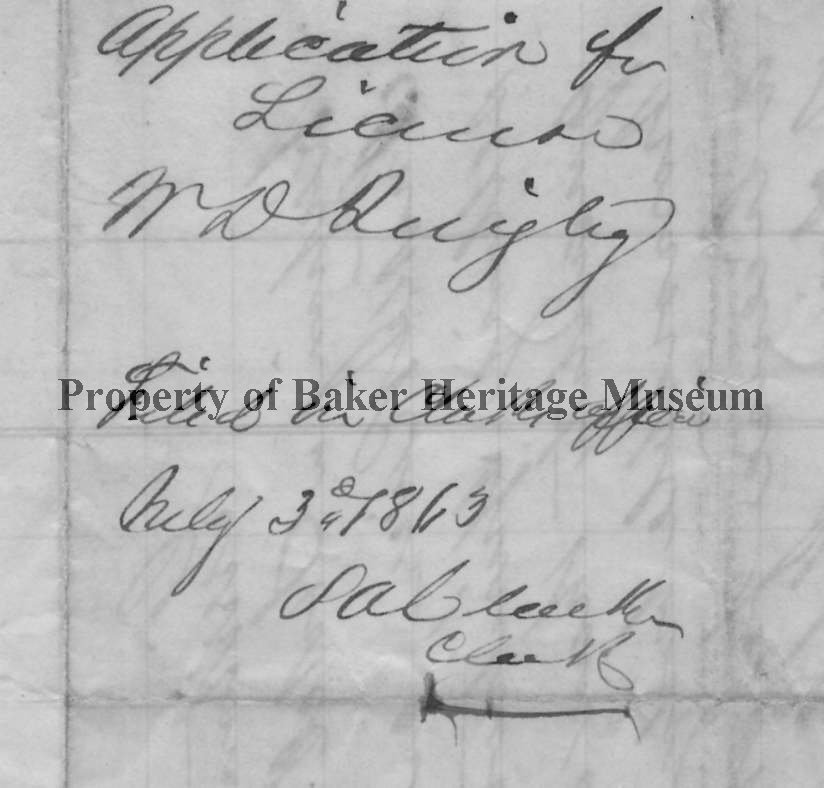 Application for
License
W D Quigley
Property of Baker Heritage Museum
Filed in Clerks office
July 3d 1863
S A C
Clerk